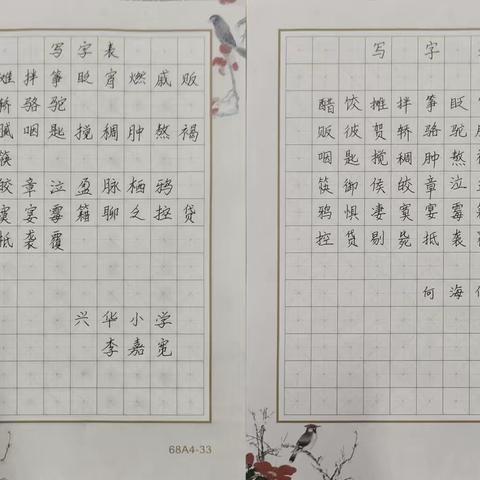 写字表
摊拌筝眨宵燃戚贩
轿骆驼
腻咽匙搅稠肿熬褐
筷
皎章泣盈脉栖鸦
寞宴霉籍聊乏控贷
抵袭覆
兴华小学
李嘉宽
68A4-33
写字
醋饺摊拌筝眨
贩彼贺轿骆驼
咽匙搅稠肿熬
筷御侯皎章泣
鸦惧凄寞宴霉籍
控贷剔毙抵袭覆
何海